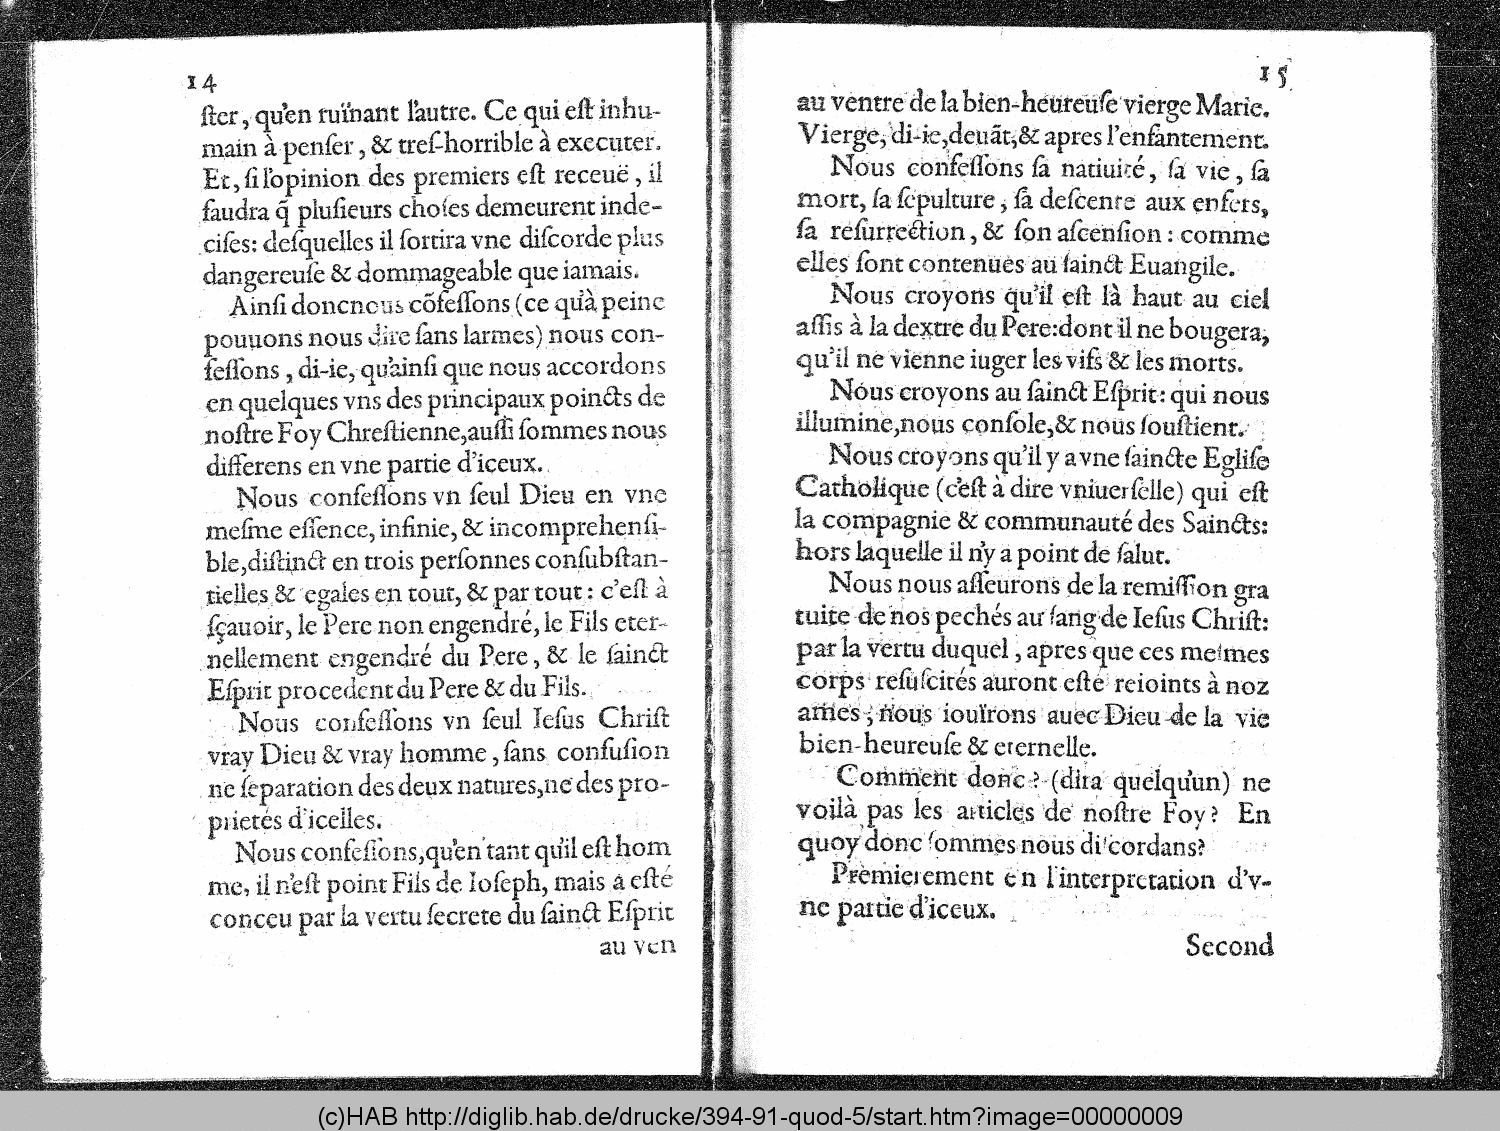 14
ſter, qu'en ruïnant l'autre. Ce qui eſt inhu-
main à penſer, & treſ-horrible à executer.
Et, ſi l'opinion des premiers eſt receuë, il
faudra q̃ pluſieurs choſes demeurent inde-
ciſes: deſquelles il ſortira vne diſcorde plus
dangereuſe & dommageable que iamais.
Ainſi doncnous cõfeſſons (ce qu'à peine
pouuons nous dire ſans larmes) nous con-
feſſons, di-ie, qu'ainſi que nous accordons
en quelques vns des principaux poincts de
noſtre Foy Chreſtienne, auſſi ſommes nous
differens en vne partie d'iceux.
Nous confeſſons vn ſeul Dieu en vne
meſme eſſence, infinie, & incomprehenſi-
ble, diſtinct en trois perſonnes conſubſtan-
tielles & egales en tout, & par tout: c'eſt à
ſçauoir, le Pere non engendré, le Fils eter-
nellement engendré du Pere, & le ſainct
Eſprit procedent du Pere & du Fils.
Nous confeſſons vn ſeul Ieſus Chriſt
vray Dieu & vray homme, ſans confuſion
ne ſeparation des deux natures, ne des pro-
prietés d'icelles.
Nous confeſſons, qu'en tant qu'il eſt hom
me, il n'eſt point Fils de Ioſeph, mais a eſté
conceu par la vertu ſecrete du ſainct Eſprit
au ven
15
au ventre de la bien-heureuſe vierge Marie.
Vierge, di-ie, deuãt, & apres l'enfantement.
Nous confeſſons ſa natiuité, ſa vie, ſa
mort, ſa ſepulture, ſa deſcente aux enfers,
ſa reſurrection, & ſon aſcenſion: comme
elles ſont contenues au ſainct Euangile.
Nous croyons qu'il eſt là haut au ciel
aſſis à la dextre du Pere: dont il ne bougera,
qu'il ne vienne iuger les vifs & les morts.
Nous croyons au ſainct Eſprit: qui nous
illumine, nous conſole, & nous ſouſtient.
Nous croyons qu'il y a vne ſaincte Egliſe
Catholique (c'eſt à dire vniuerſelle) qui eſt
la compagnie & communauté des Saincts:
hors laquelle il n'y a point de ſalut.
Nous nous aſſeurons de la remiſſion gra
tuite de nos pechés au ſang de Ieſus Chriſt:
par la vertu duquel, apres que ces meſmes
corps reſuſcités auront eſté reioints à noz
ames, nous iouïrons auec Dieu de la vie
bien-heureuſe & eternelle.
Comment donc? (dira quelqu'un) ne
voilà pas les articles de noſtre Foy? En
quoy donc ſommes nous diſcordans?
Premierement en l'interpretation d'v-
ne partie d'iceux.
Second
(c)HAB http://diglib.hab.de/drucke/394-91-quod-5/start.htm?image=00000009